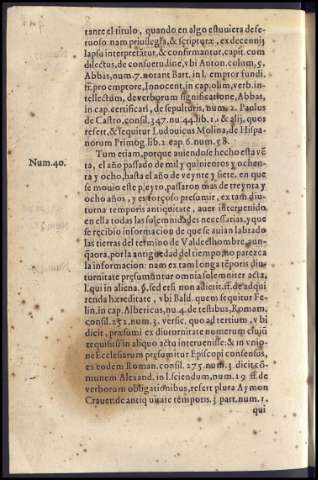 tante el titulo, quando en algo estuuiera defe-
tuoso: nam priuilegia, & scripturæ, ex decennij
lapsu interpretatur, & confirmantur, capit. cum
dilectus, de consuetudine, vbi Anton. colum. 5.
Abbas, num. 7. notant Bart. in l. emptor fundi,
ff. pro emptore, Innocent. in cap. olim, verb. in-
tellectum, de verborum significatione, Abbas,
in cap. certificari, de sepulturis, num. 2. Paulus
de Castro, consil. 347. nu. 44. lib. 1. & alij, quos
refert, & sequitur Ludouicus Molina, de Hispa-
norum Primog. lib. 2. cap. 6. num. 58.
Num. 40.
Tum etiam, porque auiendose hecho esta vē-
ta, el año passado de mil y quinientos y ochen-
ta y ocho, hasta el año de veynte y siete, en que
se mouio este pleyto, passaron mas de treynta y
ocho años, y es forçoso presumir, ex tam diu-
turna temporis antiquitate, auer interuenido
en ella todas las solemnidades necessarias, y que
se recibio informacion de que se auian labrado
las tierras del termino de Valdeelhombre, aun-
q̃ aora, por la antiguedad del tiempo, no parezca
la informacion: nam ex tam longa tēporis diu-
turnitate præsumūtur omnia solemniter acta,
l. qui in aliena. §. sed etsi non adierit. ff. de adqui
renda hæreditate, vbi Bald. quem sequitur Fe-
lin. in cap. Albericus, nu. 4. de testibus, Romam,
consil. 252. num. 3. versic. quo ad tertium, vbi
dicit, præsumi ex diuturnitate numerum
requisitū in aliquo actu interuenisse: & in vnio-
ne Ecclesiarum præsumitur Episcopi consensus,
ex eodem Roman. consil. 275. num. 3. dicit cō-
munem Alexand. in l. sciendum, num. 19. ff. de
verborum obligationibus, refert plura Aymon
Crauet. de antiq uitate tēporis. 3. part. num. 1.
qui